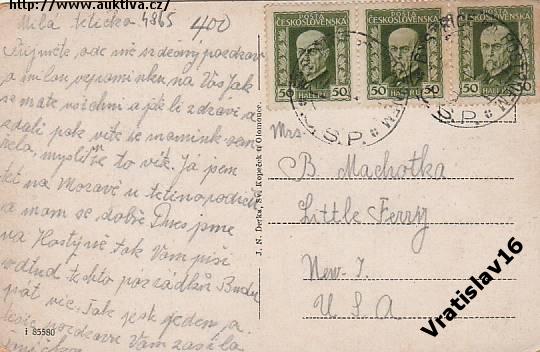 http://www.auktiva.cz/
Milá tetičko 4865
400
Přijměte, ode mě srdečný pozdrav
a milou vzpomínku na Vás Jak
se máte všichni a jak li zdrávi a
zdali pak víte se maminka vám
myslíte to víte. Já jsem
teď na Moravě u tetino
a mám se dobře Dnes jsme
na Hostýně tak Vám píši
odtud těchto pár řádků Budu
psát víc. Tak ještě jeden a
pozdrav Vám zasílá
i 85580
J. N. Derka, Sv. Kopeček u Olomouce.
POŠTA
ČESKOSLOVENSKÁ
50 HALÉŘŮ 50
POŠTA
ČESKOSLOVENSKÁ
50 HALÉŘŮ 50
POŠTA
ČESKOSLOVENSKÁ
50 HALÉŘŮ 50
Mrs.
B. Machotka
Little Ferry
New-J.
U S A
Vratislav16